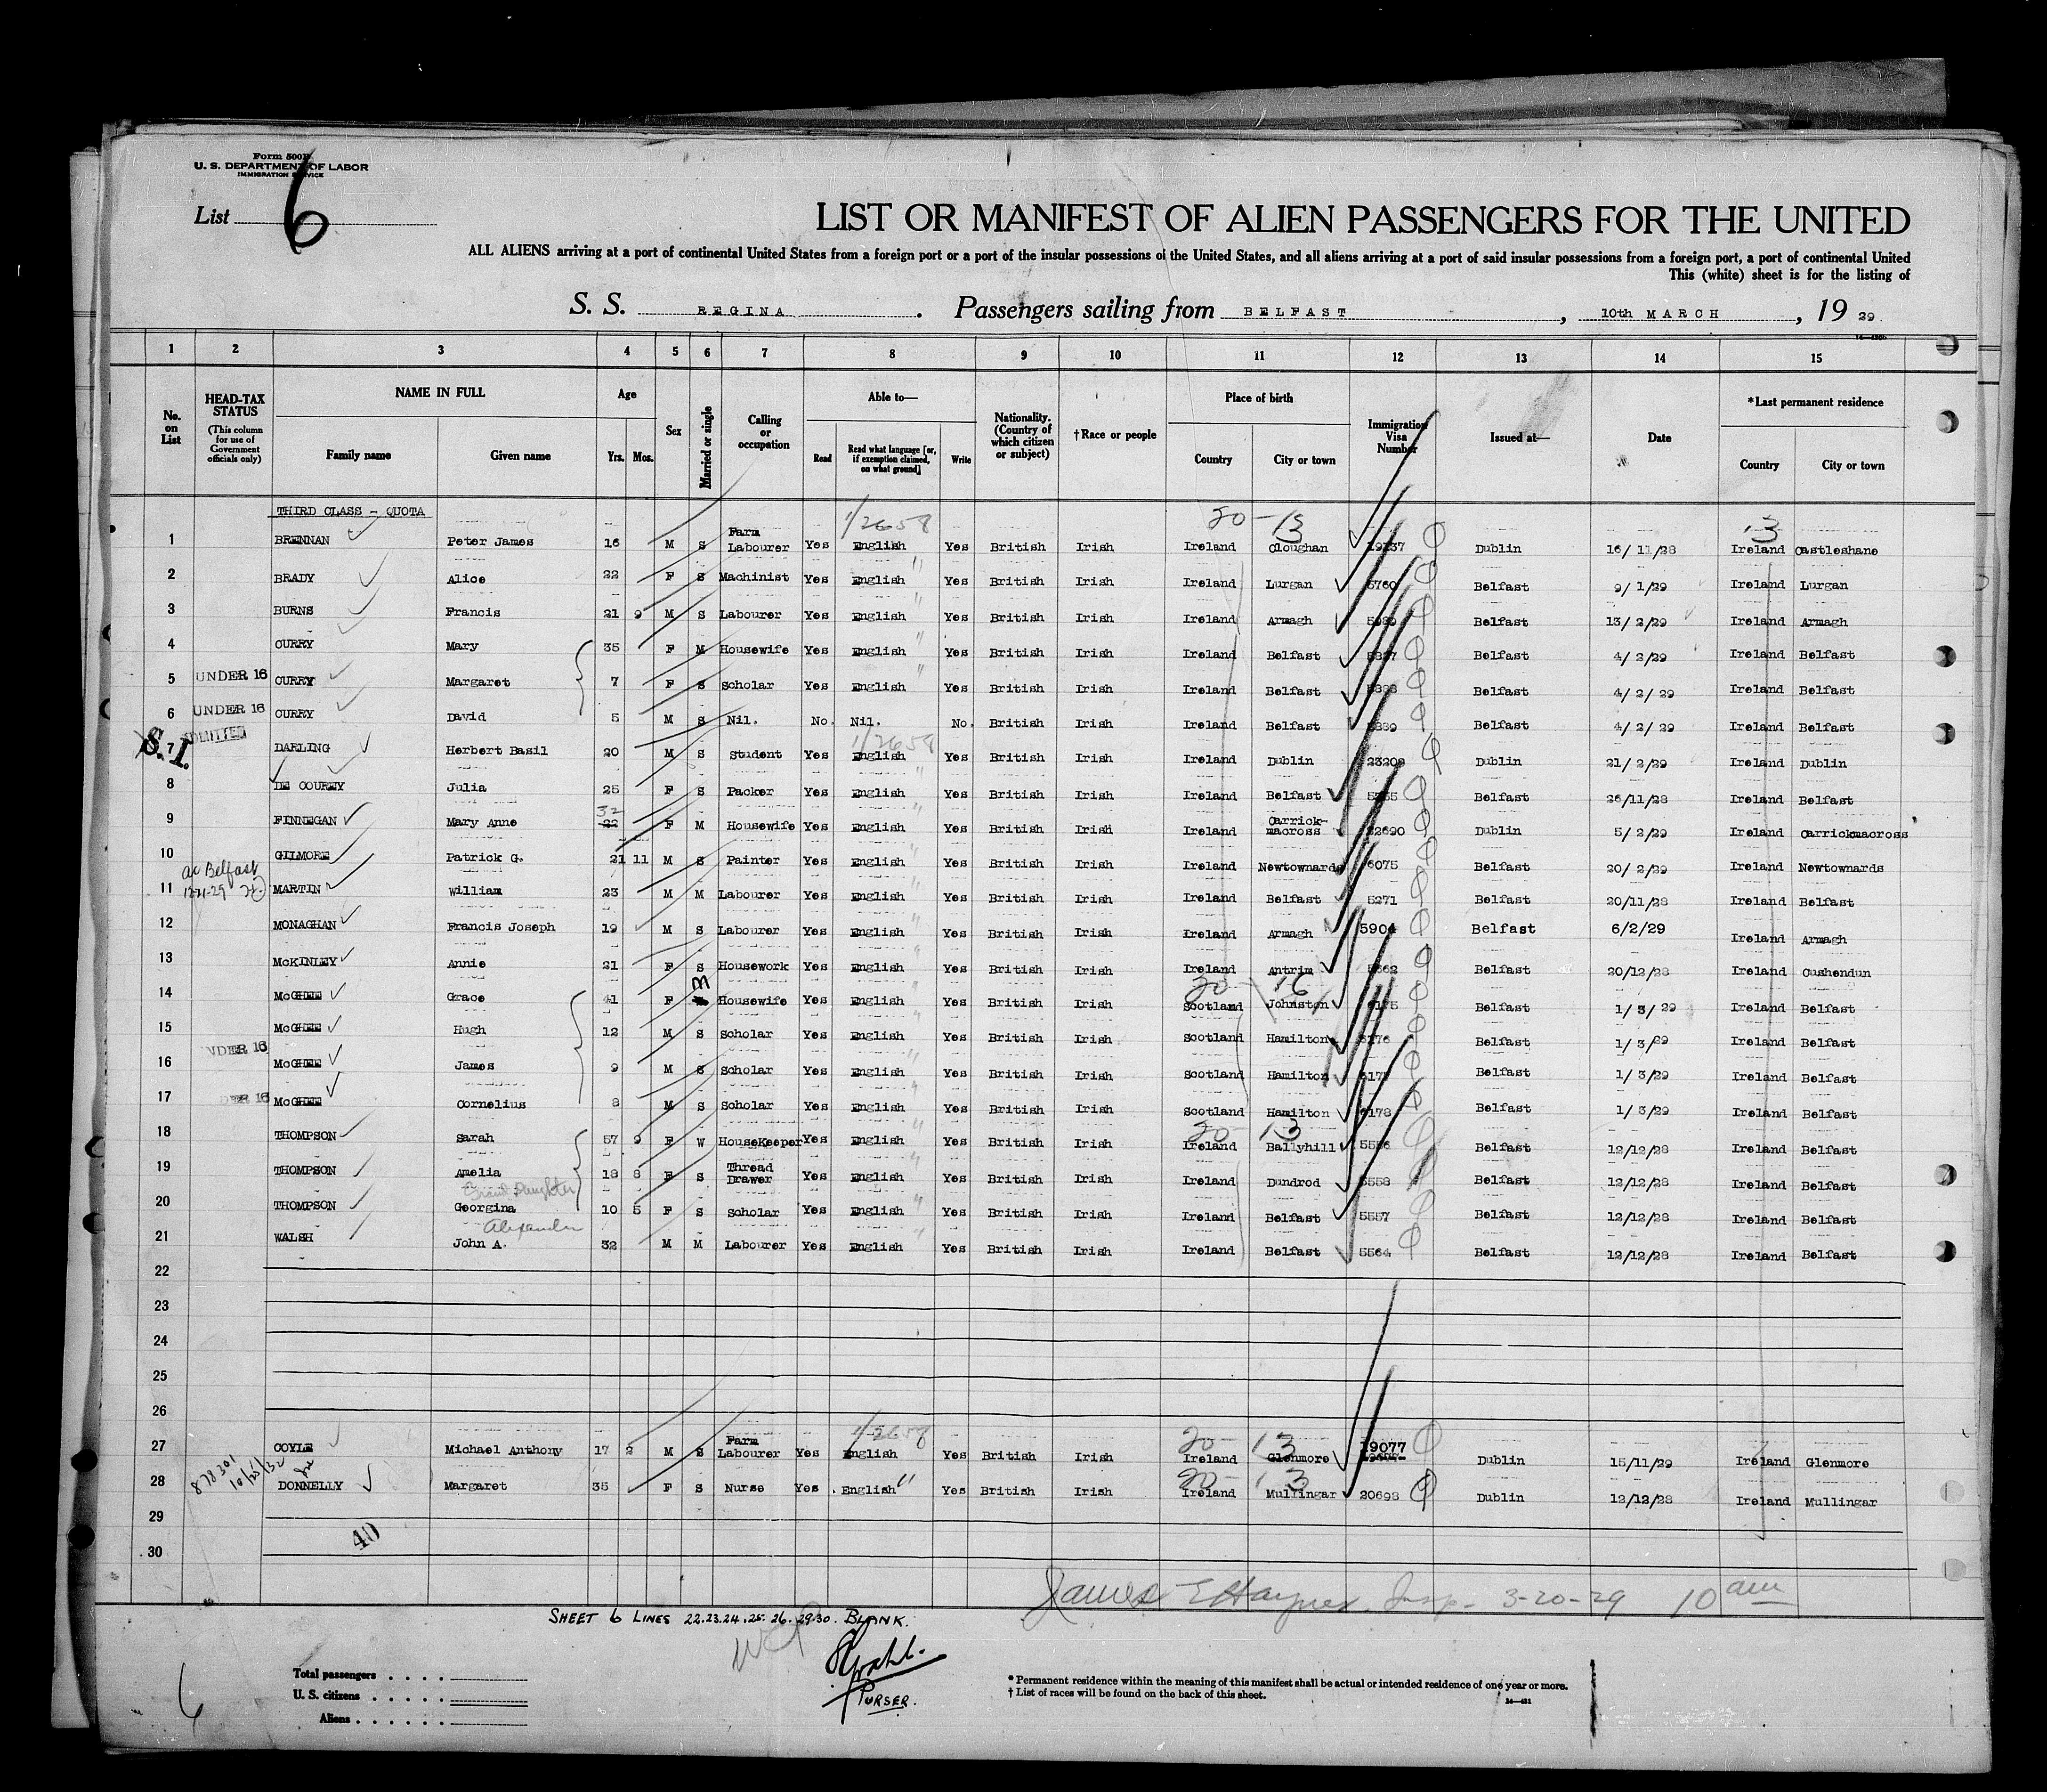 Form 500B
U. S. DEPARTMENT OF LABOR
IMMIGRATION SERVICE
List 6
LIST OR MANIFEST OF ALIEN PASSENGERS FOR THE UNITED
ALL ALIENS arriving at a port of continental United States from a foreign port or a port of the insular possessions of the United States, and all aliens arriving at a port of said insular possessions from a foreign port, a port of continental United
This (white) sheet is for the listing of
S. S. REGINA . Passengers sailing from BELFAST , 10th MARCH , 19 29
1 2 3 4 5 6 7 8 9 10 11 12 13 14 15
No. on List
HEAD-TAX STATUS (This column for use of Government officials only)
NAME IN FULL Family name Given name
Age Yrs. Mos.
Sex
Married or single
Calling or occupation
Able to— Read Read what language [or, if exemption claimed, on what ground] Write
Nationality. (Country of which citizen or subject)
†Race or people
Place of birth Country City or town
Immigration Visa Number
Issued at—
Date
*Last permanent residence Country City or town
THIRD CLASS - QUOTA 1/2658 20 - 13 13
1 BRENNAN Peter James 16 M S Farm Labourer Yes English Yes British Irish Ireland Cloughan Dublin 16/ 11/28 Ireland Castleshane
2 BRADY Alice 22 F S Machinist Yes English " Yes British Irish Ireland Lurgan 5760 Belfast 9/ 1/29 Ireland Lurgan
3 BURNS Francis 21 9 M S Labourer Yes English " Yes British Irish Ireland Armagh Belfast 13/ 2/29 Ireland Armagh
4 CURRY Mary 35 F M Housewife Yes English " Yes British Irish Ireland Belfast Belfast 4/ 2/29 Ireland Belfast
5 UNDER 16 CURRY Margaret 7 F S Scholar Yes English " Yes British Irish Ireland Belfast Belfast 4/ 2/ 29 Ireland Belfast
6 UNDER 16 CURRY David 5 M S Nil. No. Nil. No. British Irish Ireland Belfast Belfast 4/ 2/ 29 Ireland Belfast
S.I. 7 ADMITTED DARLING Herbert Basil 20 M S Student Yes 1/2658 English Yes British Irish Ireland Dublin 23208 Dublin 21/ 2/29 Ireland Dublin
8 DE COURCY Julia 25 F S Packer Yes English " Yes British Irish Ireland Belfast Belfast 26/11/28 Ireland Belfast
9 FINNEGAN Mary Anne 32 22 F M Housewife Yes English " Yes British Irish Ireland Carrick-macross 22690 Dublin 5/ 2/29 Ireland Carrickmacross
10 GILMORE Patrick G. 21 11 M S Painter Yes English " Yes British Irish Ireland Newtownards 6075 Belfast 20/ 2/29 Ireland Newtownards
Belfast
11 MARTIN William 23 M M Labourer Yes English " Yes British Irish Ireland Belfast 5271 Belfast 20/11/28 Ireland Belfast
12 MONAGHAN Francis Joseph 19 M S Labourer Yes English " Yes British Irish Ireland Armagh 5904 Belfast 6/2/29 Ireland Armagh
13 McKINLEY Annie 21 F S Housework Yes English " Yes British Irish Ireland Antrim Belfast 20/12/28 Ireland Cushendun
20 - 16
14 McGHEE Grace 41 F M Housewife Yes English " Yes British Irish Scotland Johnston 6175 Belfast 1/ 3/ 29 Ireland Belfast
15 McGHEE Hugh 12 M S Scholar Yes English " Yes British Irish Scotland Hamilton 6176 Belfast 1/ 3/29 Ireland Belfast
16 UNDER 16 McGHEE James 9 M S Scholar Yes English " Yes British Irish Scotland Hamilton 6177 Belfast 1/ 3/29 Ireland Belfast
17 UNDER 16 McGHEE Cornelius 8 M S Scholar Yes English " Yes British Irish Scotland Hamilton 6178 Belfast 1/ 3/29 Ireland Belfast
20 - 13
18 THOMPSON Sarah 57 9 F W HouseKeeper Yes English " Yes British Irish Ireland Ballyhill 5556 Belfast 12/12/28 Ireland Belfast
19 THOMPSON Amelia 18 8 F S Thread Drawer Yes English " Yes British Irish Ireland Dundrod 5558 Belfast 12/12/28 Ireland Belfast
Grand Daughter
20 THOMPSON Georgina 10 5 F S Scholar Yes English " Yes British Irish Ireland Belfast 5557 Belfast 12/12/28 Ireland Belfast
Alexander
21 WALSH John A. 32 M M Labourer Yes English " Yes British Irish Ireland Belfast 5564 Belfast 12/12/28 Ireland Belfast
22
23
24
25
26
1/2658 20 - 13
27 COYLE Michael Anthony 17 2 M S Farm Labourer Yes English Yes British Irish Ireland Glenmore 19077 Dublin 15/11/29 Ireland Glenmore
878301 20 - 13
28 DONNELLY Margaret 35 F S Nurse Yes English " Yes British Irish Ireland Mullingar 20698 Dublin 12/12/28 Ireland Mullingar
29
40
30
James E Haynes Insp- 3-20-29 10 am
SHEET 6 LINES 22.23.24.25.26.29.30. BLANK.
PURSER.
6
Total passengers . . . .
U. S. citizens . . . . .
Aliens . . . . . .
* Permanent residence within the meaning of this manifest shall be actual or intended residence of one year or more.
† List of races will be found on the back of this sheet.